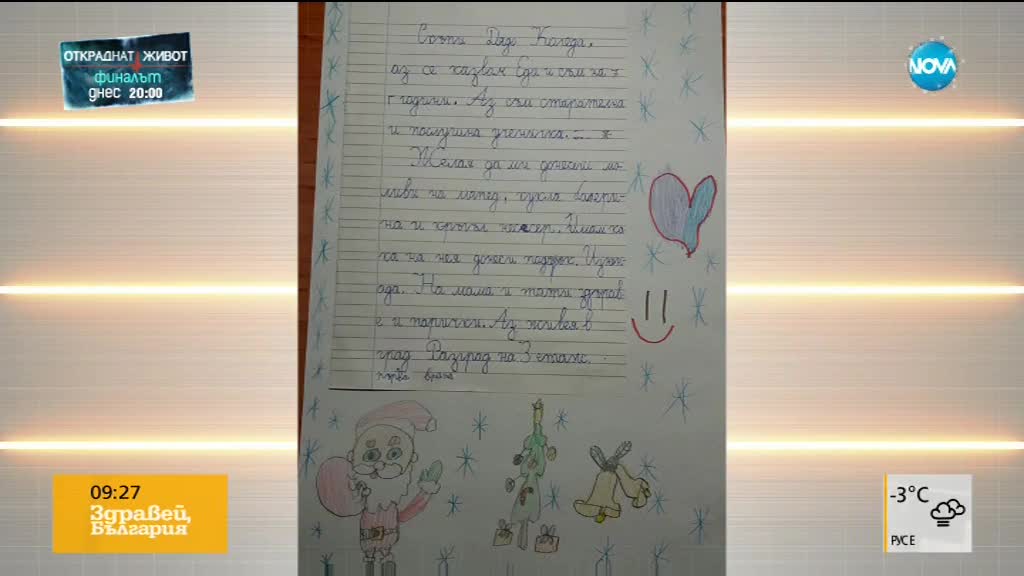 ОТКРАДНАТ ЖИВОТ
ФИНАЛЪТ
ДНЕС 20:00
NOVA
Скъпи Дядо Коледа,
аз се казвам Еда и съм на 7
г години. Аз съм старателна
и послушна ученичка.
Желая да ми донесеш мо-
ливи на
кукла балери-
на и кръгъл несесер. Имам ка
ка на нея донеси подарък.
ада. На мама и тати здрав
е и парички. Аз живея в
град Разград на 3 етаж.
първа врата
09:27
Здравей,
България
-3°C
РУСЕ